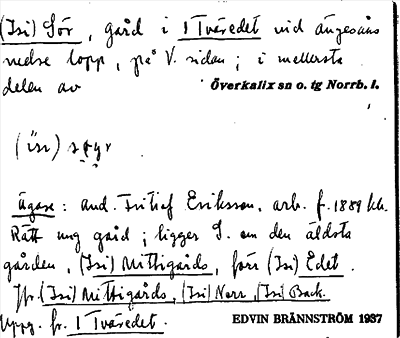 (Isi) Sör, gård i I Tväredet vid Ängesåns
nedre lopp, på V. sidan; i mellersta
delen av Överkalix sn o. tg Norrb. l.
(isi) sør
Ägare: and. Fritiof Eriksson, arb. f. 1889 klk.
Rätt ung gård; ligger S. om den äldsta
gården, (Isi) Mittigårds, förr (Isi) Edet.
Jfr (Isi) Mittigårds, (Isi) Norr, (Isi) Back.
Uppg. fr. I Tväredet. EDVIN BRÄNNSTRÖM 1937